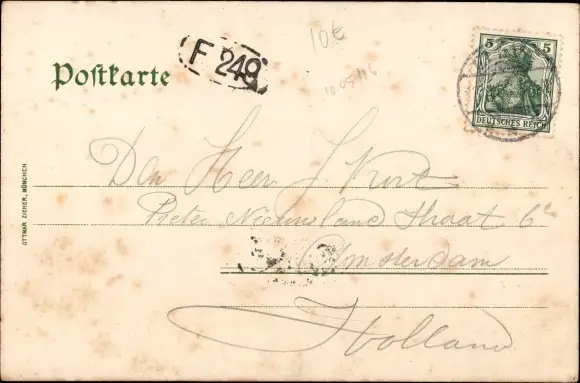 10€
F 249
5 5
Postkarte
10.05 116
DEUTSCHES REICH
Den Heer J. Kort
Pieter Nieuwland Straat 6
Amsterdam
Holland
OTTMAR ZIEHER, MÜNCHEN.